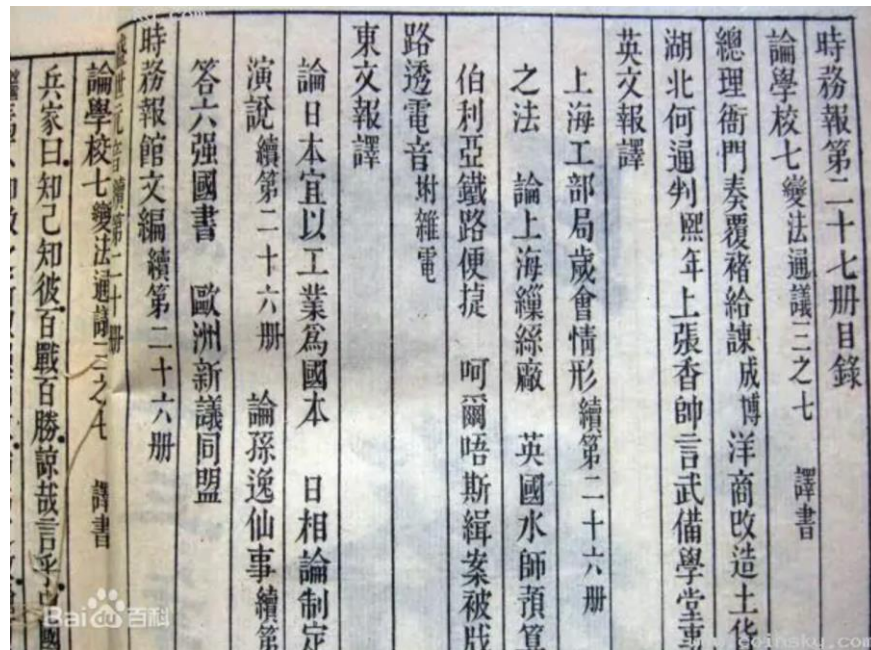 時務報第二十七册目錄
論學校七變法通議三之七 譯書
總理衙門奏覆褚給諫成博 洋商改造土貨
湖北何通判熙年上張香帥言武備學堂
英文報譯
上海工部局歲會情形續第二十六册
之法 論上海繅絲廠 英國水師預算
伯利亞鐵路便捷 呵爾唔斯緝案被戕
路透電音坿雜電
東文報譯
論日本宜以工業爲國本 日相論制定
演說續第二十六册 論孫逸仙事續第
答六强國書 歐洲新議同盟
時務報館文編續第二十六册
盛世元音續第二十册
論學校七變法通議三之七 譯書
兵家曰知己知彼百戰百勝諒哉言乎
Bai 百科
www.coinsky.com